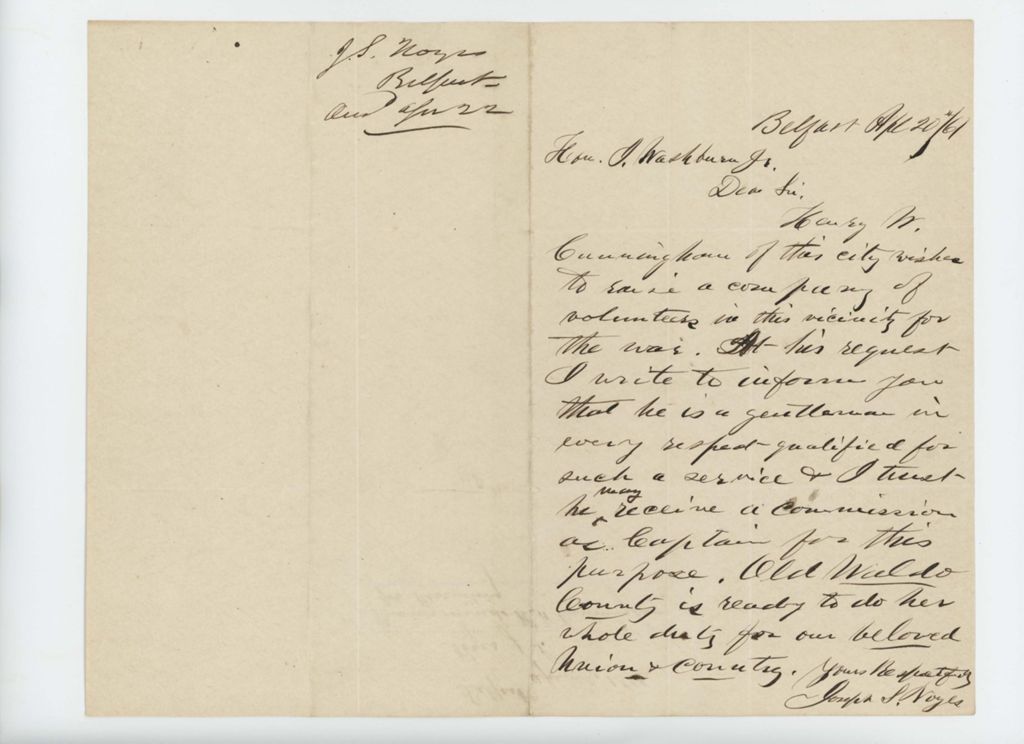 J. S. Noyes
Belfast
Ansd Apr 22
Belfast Apl 20th/61
Hon. I. Washburn Jr.
Dear Sir,
Henry W.
Cunningham of this city wishes
to raise a company of
volunteers in this vicinity for
the war. At his request
I write to inform you
that he is a gentleman in
every respect qualified for
such a service & I trust
he may receive a commission
as Captain for this
purpose. Old Waldo
County is ready to do her
whole duty for our beloved
Union & Country. Yours Respectfully
Joseph S. Noyes